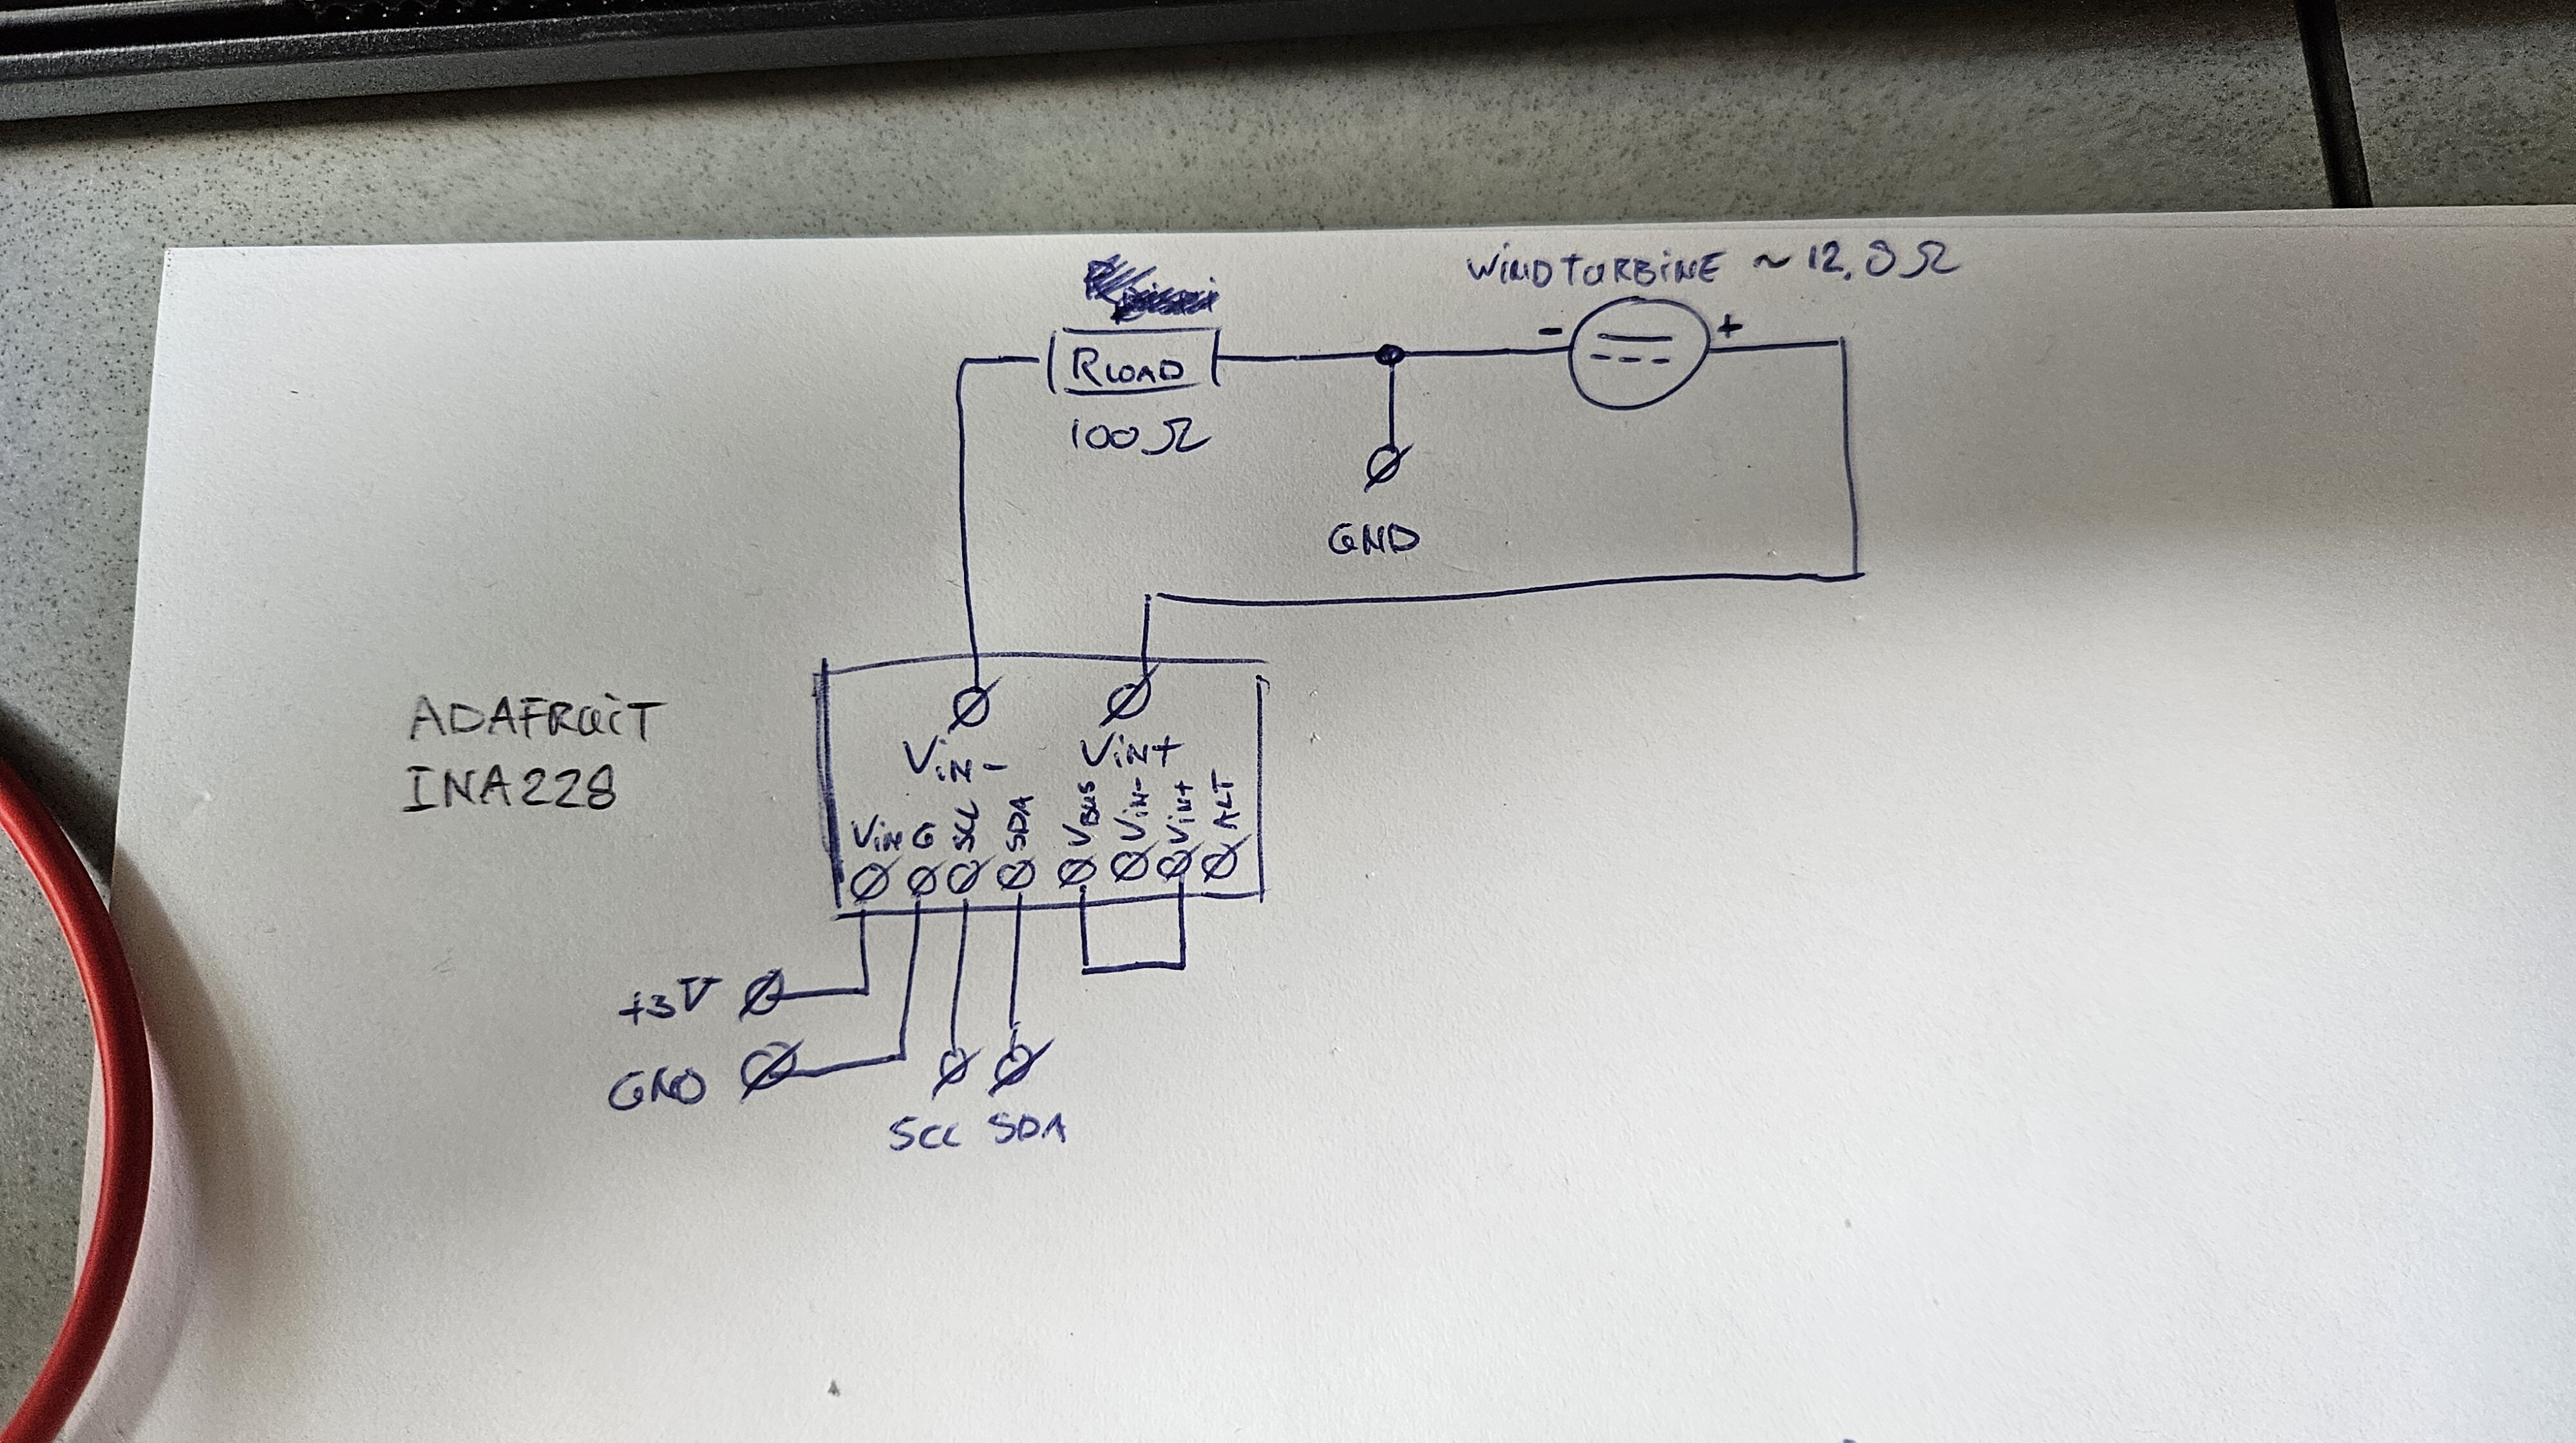 WINDTURBINE ~ 12,8 Ω
- +
RLOAD
100 Ω
GND
ADAFRUIT
INA228
VIN- VIN+
VIN G SCL SDA VBUS VIN- VIN+ ALT
+3V
GND
SCL SDA